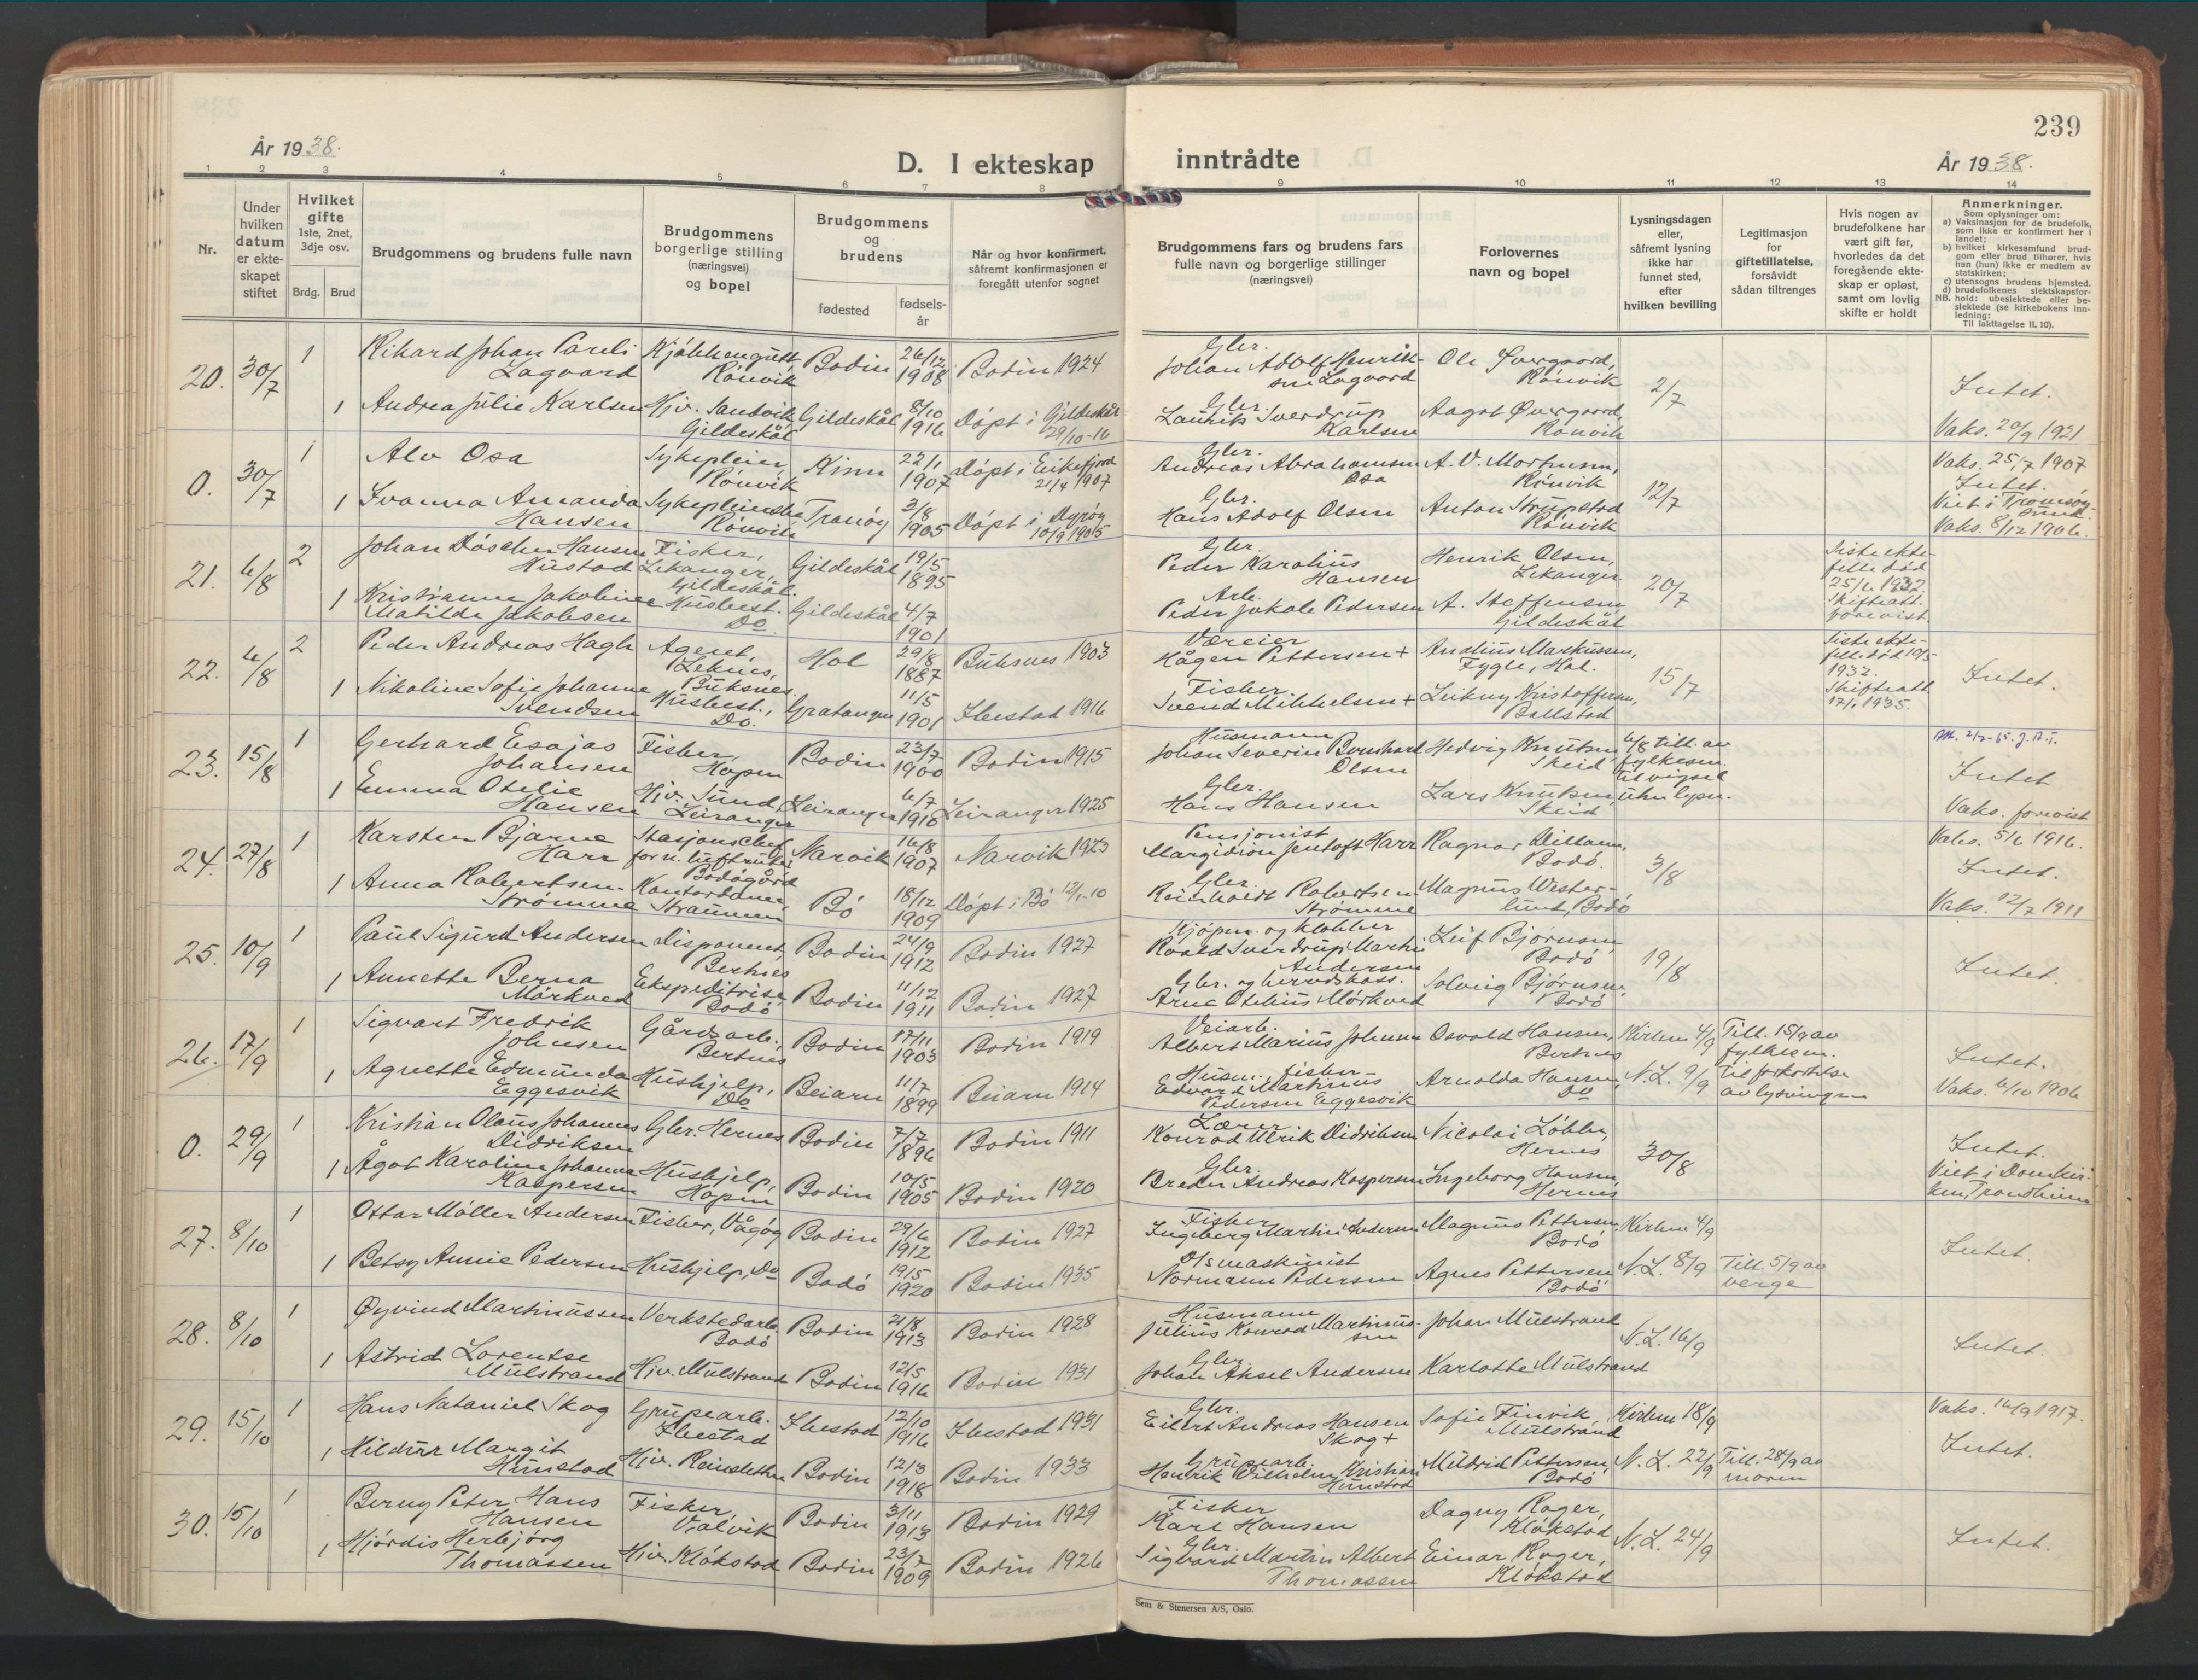 239
År 1938.
D. I ekteskap inntrådte
År 1938.
1 2 3 4 5 6 7 8 9 10 11 12 13 14
Nr.
Under hvilken datum er ekteskapet stiftet
Hvilket gifte 1ste, 2net, 3dje osv.
Brdg. Brud
Brudgommens og brudens fulle navn
Brudgommens borgerlige stilling (næringsvei) og bopel
Brudgommens og brudens
fødested
fødselsår
Når og hvor konfirmert, såfremt konfirmasjonen er foregått utenfor sognet
Brudgommens fars og brudens fars fulle navn og borgerlige stillinger (næringsvei)
Forlovernes navn og bopel
Lysningsdagen eller, såfremt lysning ikke har funnet sted, efter hvilken bevilling
Legitimasjon for giftetillatelse, forsåvidt sådan tiltrenges
Hvis nogen av brudefolkene har vært gift før, hvorledes da det foregående ekteskap er opløst, samt om lovlig skifte er holdt
Anmerkninger.
Som oplysninger om:
a) Vaksinasjon for de brudefolk, som ikke er konfirmert her i landet;
b) hvilket kirkesamfund brudgom eller brud tilhører, hvis han (hun) ikke er medlem av statskirken;
c) utensogns brudens hjemsted.
d) brudefolkenes slektskapsforhold: ubeslektede eller beslektede (se kirkebokens innledning:
NB.
Til iakttagelse II. 10).
20. 30/7 1 Rikard Johan Pareli Lagaard Kjøkkengutt, Rønvik Bodin 26/12 1908 Bodin 1924 Gbr. Johan Adolf Henriksen Lagaard Ole Øvergaard, Rønvik 2/7 Intet.
1 Andrea Julie Karlsen Hjv. Sandvik Gildeskål Gildeskål 8/10 1916 Døpt i Gildeskål 29/10-16 Gbr. Lauritz Sverdrup Karlsen Aagot Øvergaard, Rønvik Vaks. 20/9 1921
0. 30/7 1 Alv Osa Sykepleier, Rønvik Kinn 22/1 1907 Døpt i Eikefjord 21/4 1907 Gbr. Andreas Abrahamsen Osa A. V. Mortensen, Rønvik 12/7 Vaks. 25/7 1907 Intet.
1 Ivanna Amanda Hansen Sykepleierske Rønvik Tranøy 3/8 1905 Døpt i Dyrøy 10/9 1905 Gbr. Hans Adolf Olsen Anton Strupstad Rønvik Viet i Tromsøysund. Vaks. 8/12 1906.
21. 6/8 2 Johan Døscher Hansen Hustad Fisker, Lekanger, Gildeskål. Gildeskål 19/5 1895 Gbr. Peder Karolius Hansen Henrik Olsen, Lekanger 20/7 Siste ektefelle død 25/6 1932. Skifteatt. forevist
1 Kristianne Jakobine Matilde Jakobsen Husbest. Do Gildeskål 4/7 1901 Arb. Peder Jakob Pedersen A. Steffensen, Gildeskål
22. 6/8 2 Peder Andreas Hagh Agent, Leknes, Buksnes. Hol 29/8 1887 Buksnes 1903 Væreier Hågen Pettersen + Andlius Markussen, Fygle, Hol. 15/7 Siste ektefelle død 10/5 1932. Skifteatt 17/1 1935. Intet.
1 Nikoline Sofie Johanne Svendsen Husbest., Do. Gratangen 11/5 1901 Ibestad 1916 Fisker Svend Mikkelsen + Leikny Kristoffersen, Ballstad
23. 15/8 1 Gerhard Esajas Johansen Fisker, Hopen Bodin 23/7 1900 Bodin 1915 Husmann Johan Severin Bernhard Olsen Hedvig Knutsen Skeid 6/8 till. av fylkesm. til vigsel uten lysn. Att. 2/2-65. J.B.T. Intet
1 Emma Otelie Hansen Hjv. Sund, Leiranger Leiranger 6/7 1910 Leiranger 1925 Gbr. Hans Hansen Lars Knutsen Skeid Vaks. forevist
24. 27/8 1 Karsten Bjarne Harr Stasjonschef for n. luftruter Bodøgård Narvik 16/8 1907 Narvik 1923 Pensjonist Margidion Jentoft Harr Ragnar Willam, Bodø. 3/8 Vaks. 5/6 1916. Intet.
1 Anna Robertsen-Strømme Kontordame, Straumen Bø 18/12 1909 Døpt i Bø 12/1-10 Gbr. Reinholdt Robertsen Strømme Magnus Westerlund, Bodø Vaks. 12/7 1911
25. 10/9 1 Paul Sigurd Andersen Disponent, Bertnes Bodin 24/9 1912 Bodin 1927 Kjøpm. og klokker Roald Sverdrup Martin Andersen Leif Bjørnsen, Bodø 19/8 Intet.
1 Annette Berna Mørkved Ekspeditrise, Bodø Bodin 11/12 1911 Bodin 1927 Gbr. og herredskass. Arne Otelius Mørkved Solveig Bjørnsen, Bodø
26. 17/9 1 Sigvart Fredrik Johnsen Gårdsarb., Bertnes Bodin 17/11 1903 Bodin 1919 Veiarb. Albert Marius Johnsen Osvald Hansen, Bertnes Kirken 4/9 Till. 15/9 av fylkesm. til forkortelse av lysningen Intet.
1 Agnette Edmunda Eggesvik Hushjelp, Do Beiarn 11/7 1899 Beiarn 1914 Husm., fisker Edvard Martinus Pedersen Eggesvik Arnolda Hansen, Do N.L. 9/9 Vaks. 6/10 1906
0. 29/9 1 Kristian Olaus Johannes Didriksen Gbr. Hernes Bodin 7/7 1896 Bodin 1911 Lærer Konrad Ulrik Didriksen Nicolai Løkke, Hernes 30/8 Intet.
1 Ågot Karoline Johanna Kaspersen Hushjelp, Hopen Bodin 10/5 1905 Bodin 1920 Gbr. Breder Andreas Kaspersen Ingeborg Hansen, Hernes Viet i Domkirken, Trondheim
27. 8/10 1 Ottar Møller Andersen Fisker, Vågøy Bodin 29/6 1912 Bodin 1927 Fisker Ingeberg Martin Andersen Magnus Pettersen Bodø Kirken 4/9 Intet.
1 Betsy Annie Pedersen Hushjelp, Do Bodø 19/5 1920 Bodin 1935 Normann Pedersen Agnes Pettersen Bodø N.L. 8/9 Till. 5/9 av verge
28. 8/10 1 Øyvind Martinussen Verkstedarb. Bodø Bodin 21/8 1913 Bodin 1928 Husmann Julius Konrad Martinussen Johan Mulstrand N.L. 16/9 Intet.
1 Astrid Lorentse Mulstrand Hjv. Mulstrand Bodin 12/5 1916 Bodin 1931 Gbr. Johan Aksel Andersen Karlotte Mulstrand
29. 15/10 1 Hans Nataniel Skog Grupearb. Ibestad Ibestad 12/10 1916 Ibestad 1931 Gbr. Eilert Andreas Hansen Skog + Sofie Finvik, Mulstrand Kirken 18/9 Vaks. 14/9 1917. Intet.
1 Hildurr Margit Hunstad Hjv. Reinsletten Bodin 12/3 1918 Bodin 1933 Grupearb. Henrik Wilhelm Kristian Hunstad Mildrid Pettersen, Bodø N.L. 22/9 Till. 28/9 av moren
30. 15/10 1 Berny Peter Hans Hansen Fisker, Valvik Bodin 3/11 1913 Bodin 1929 Fisker Karl Hansen Dagny Røger, Kløkstad N.L. 24/9 Intet.
1 Hjørdis Herbjørg Thomassen Hjv. Kløkstad Bodin 23/7 1909 Bodin 1926 Gbr. Sigvard Martin Albert Thomassen Einar Røger, Kløkstad
Sem & Stenersen A/S, Oslo.